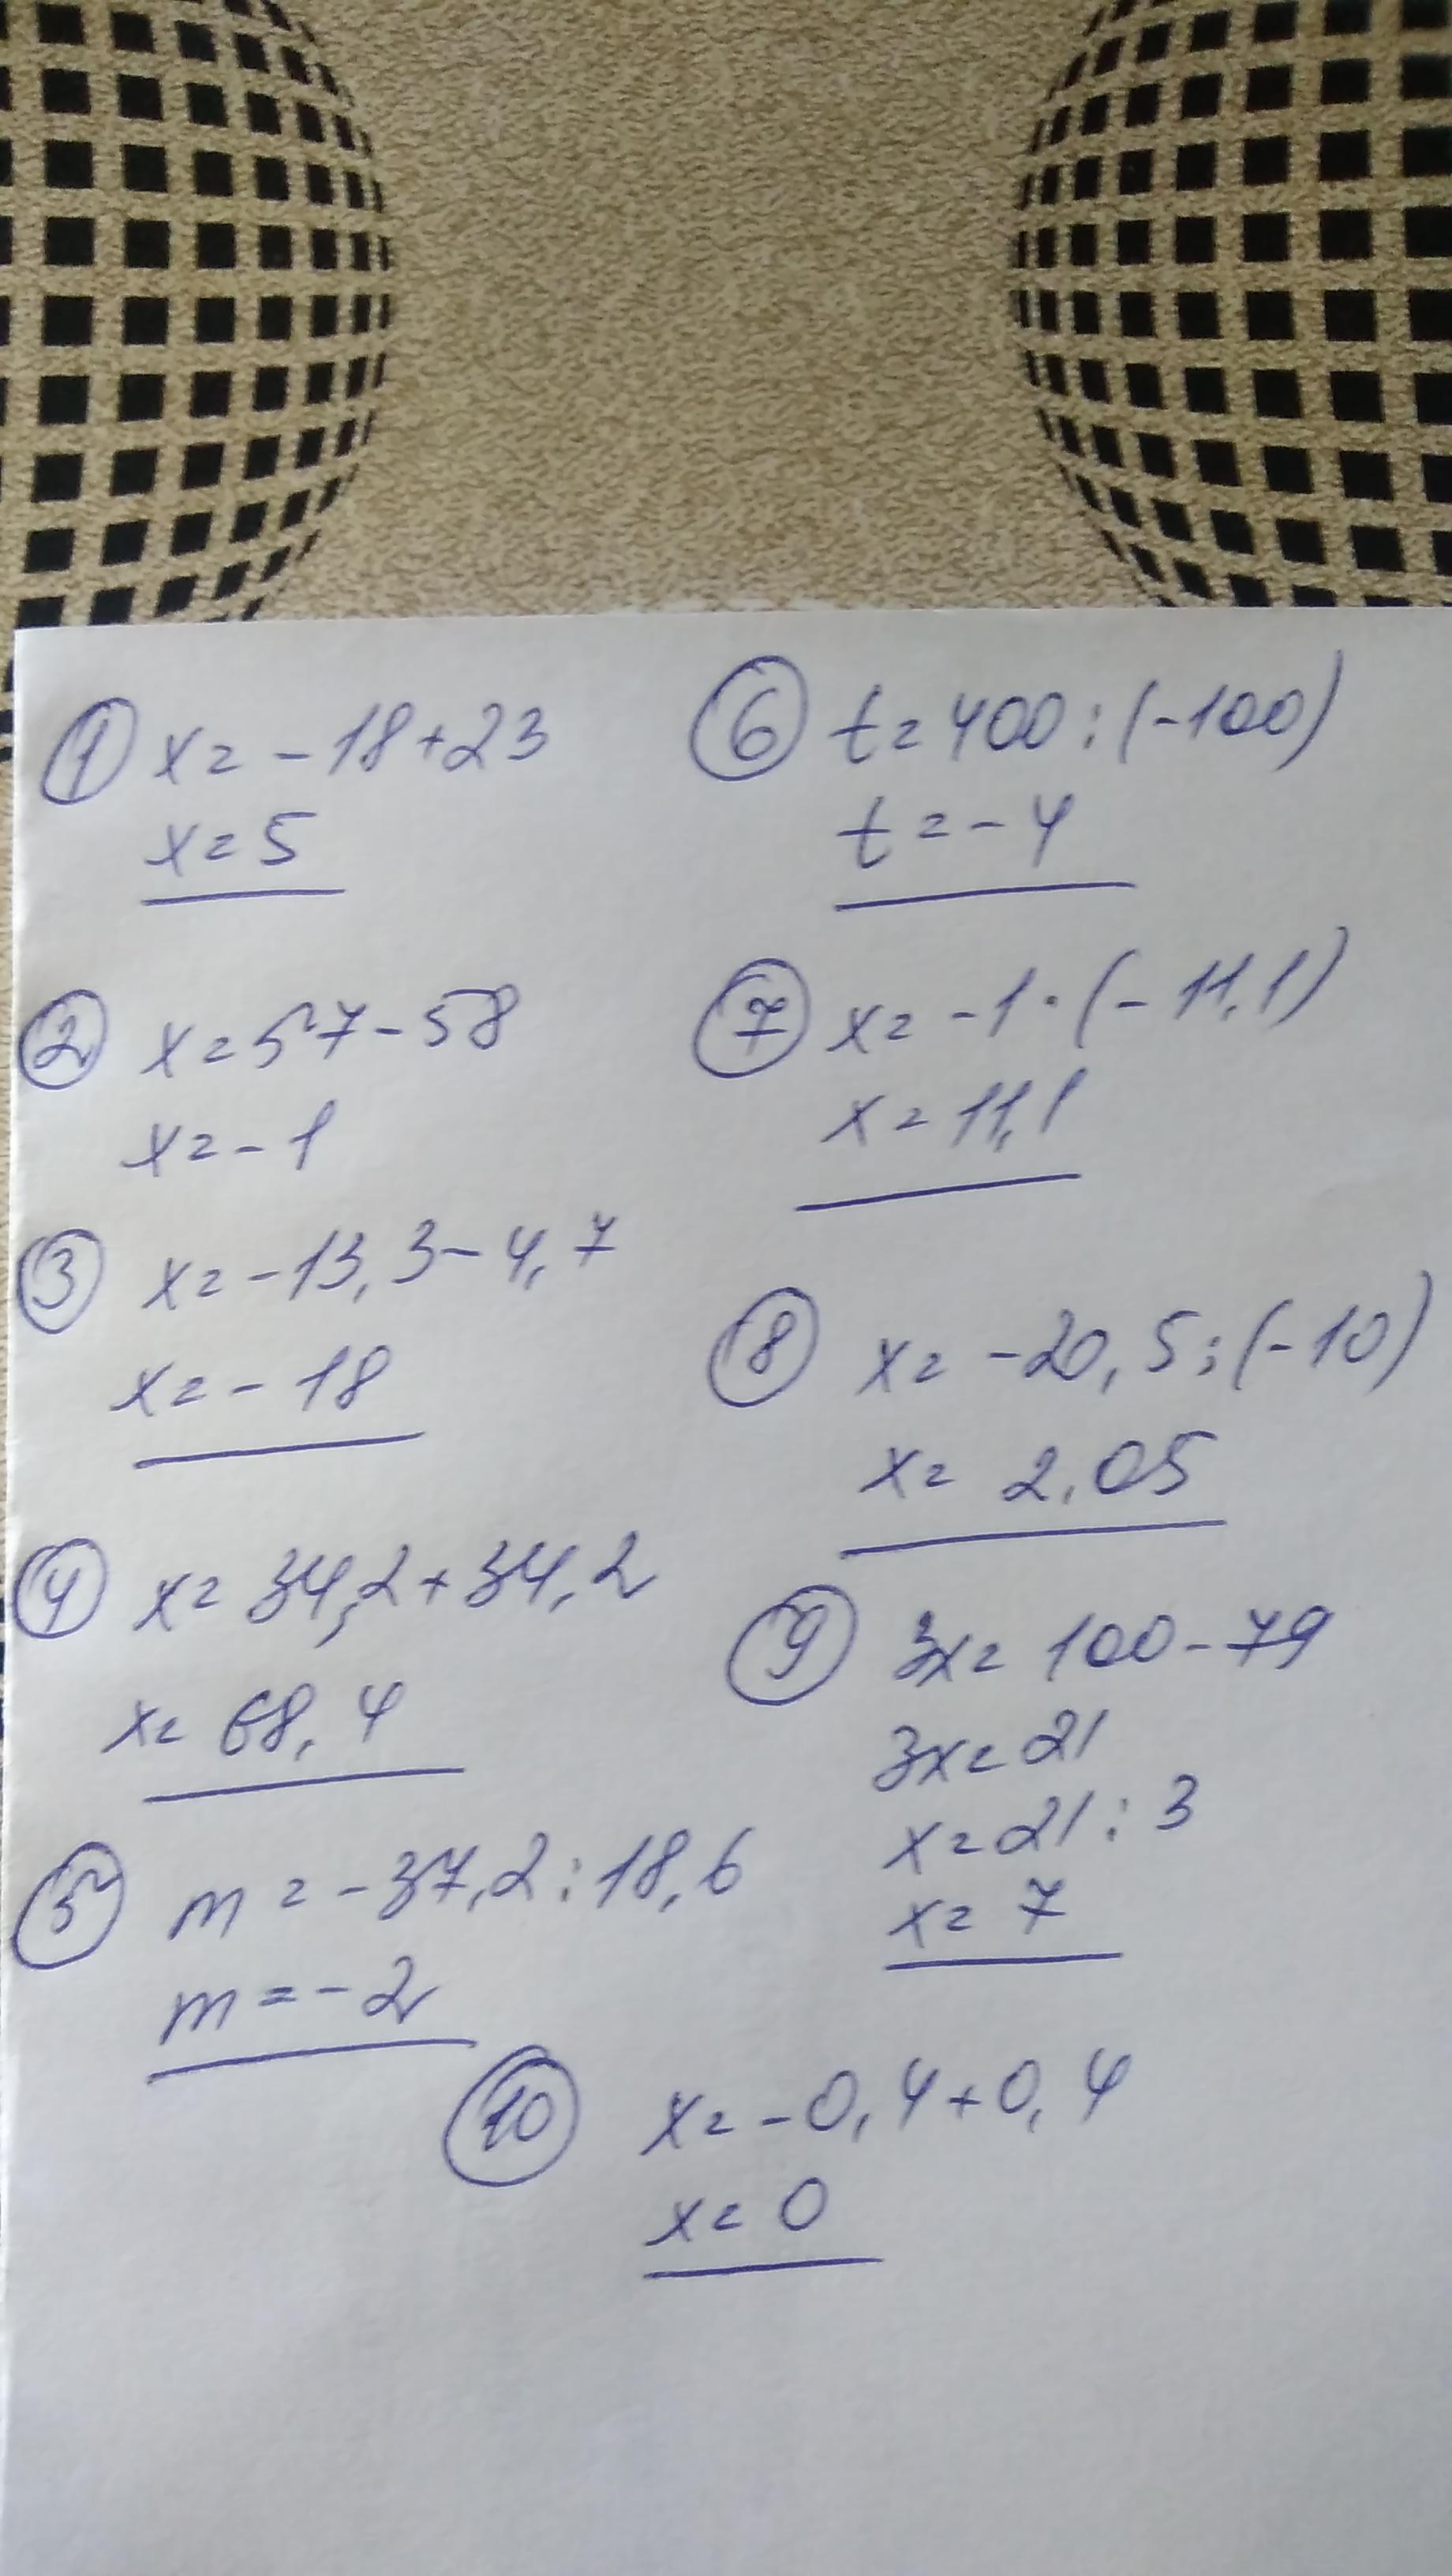 ① x = -18+23
x = 5
② x = 57-58
x = -1
③ x = -13,3-4,7
x = -18
④ x = 34,2+34,2
x = 68,4
⑤ m = -37,2:18,6
m = -2
⑥ t = 400:(-100)
t = -4
⑦ x = -1·(-11,1)
x = 11,1
⑧ x = -20,5:(-10)
x = 2,05
⑨ 3x = 100-79
3x = 21
x = 21:3
x = 7
⑩ x = -0,4+0,4
x = 0